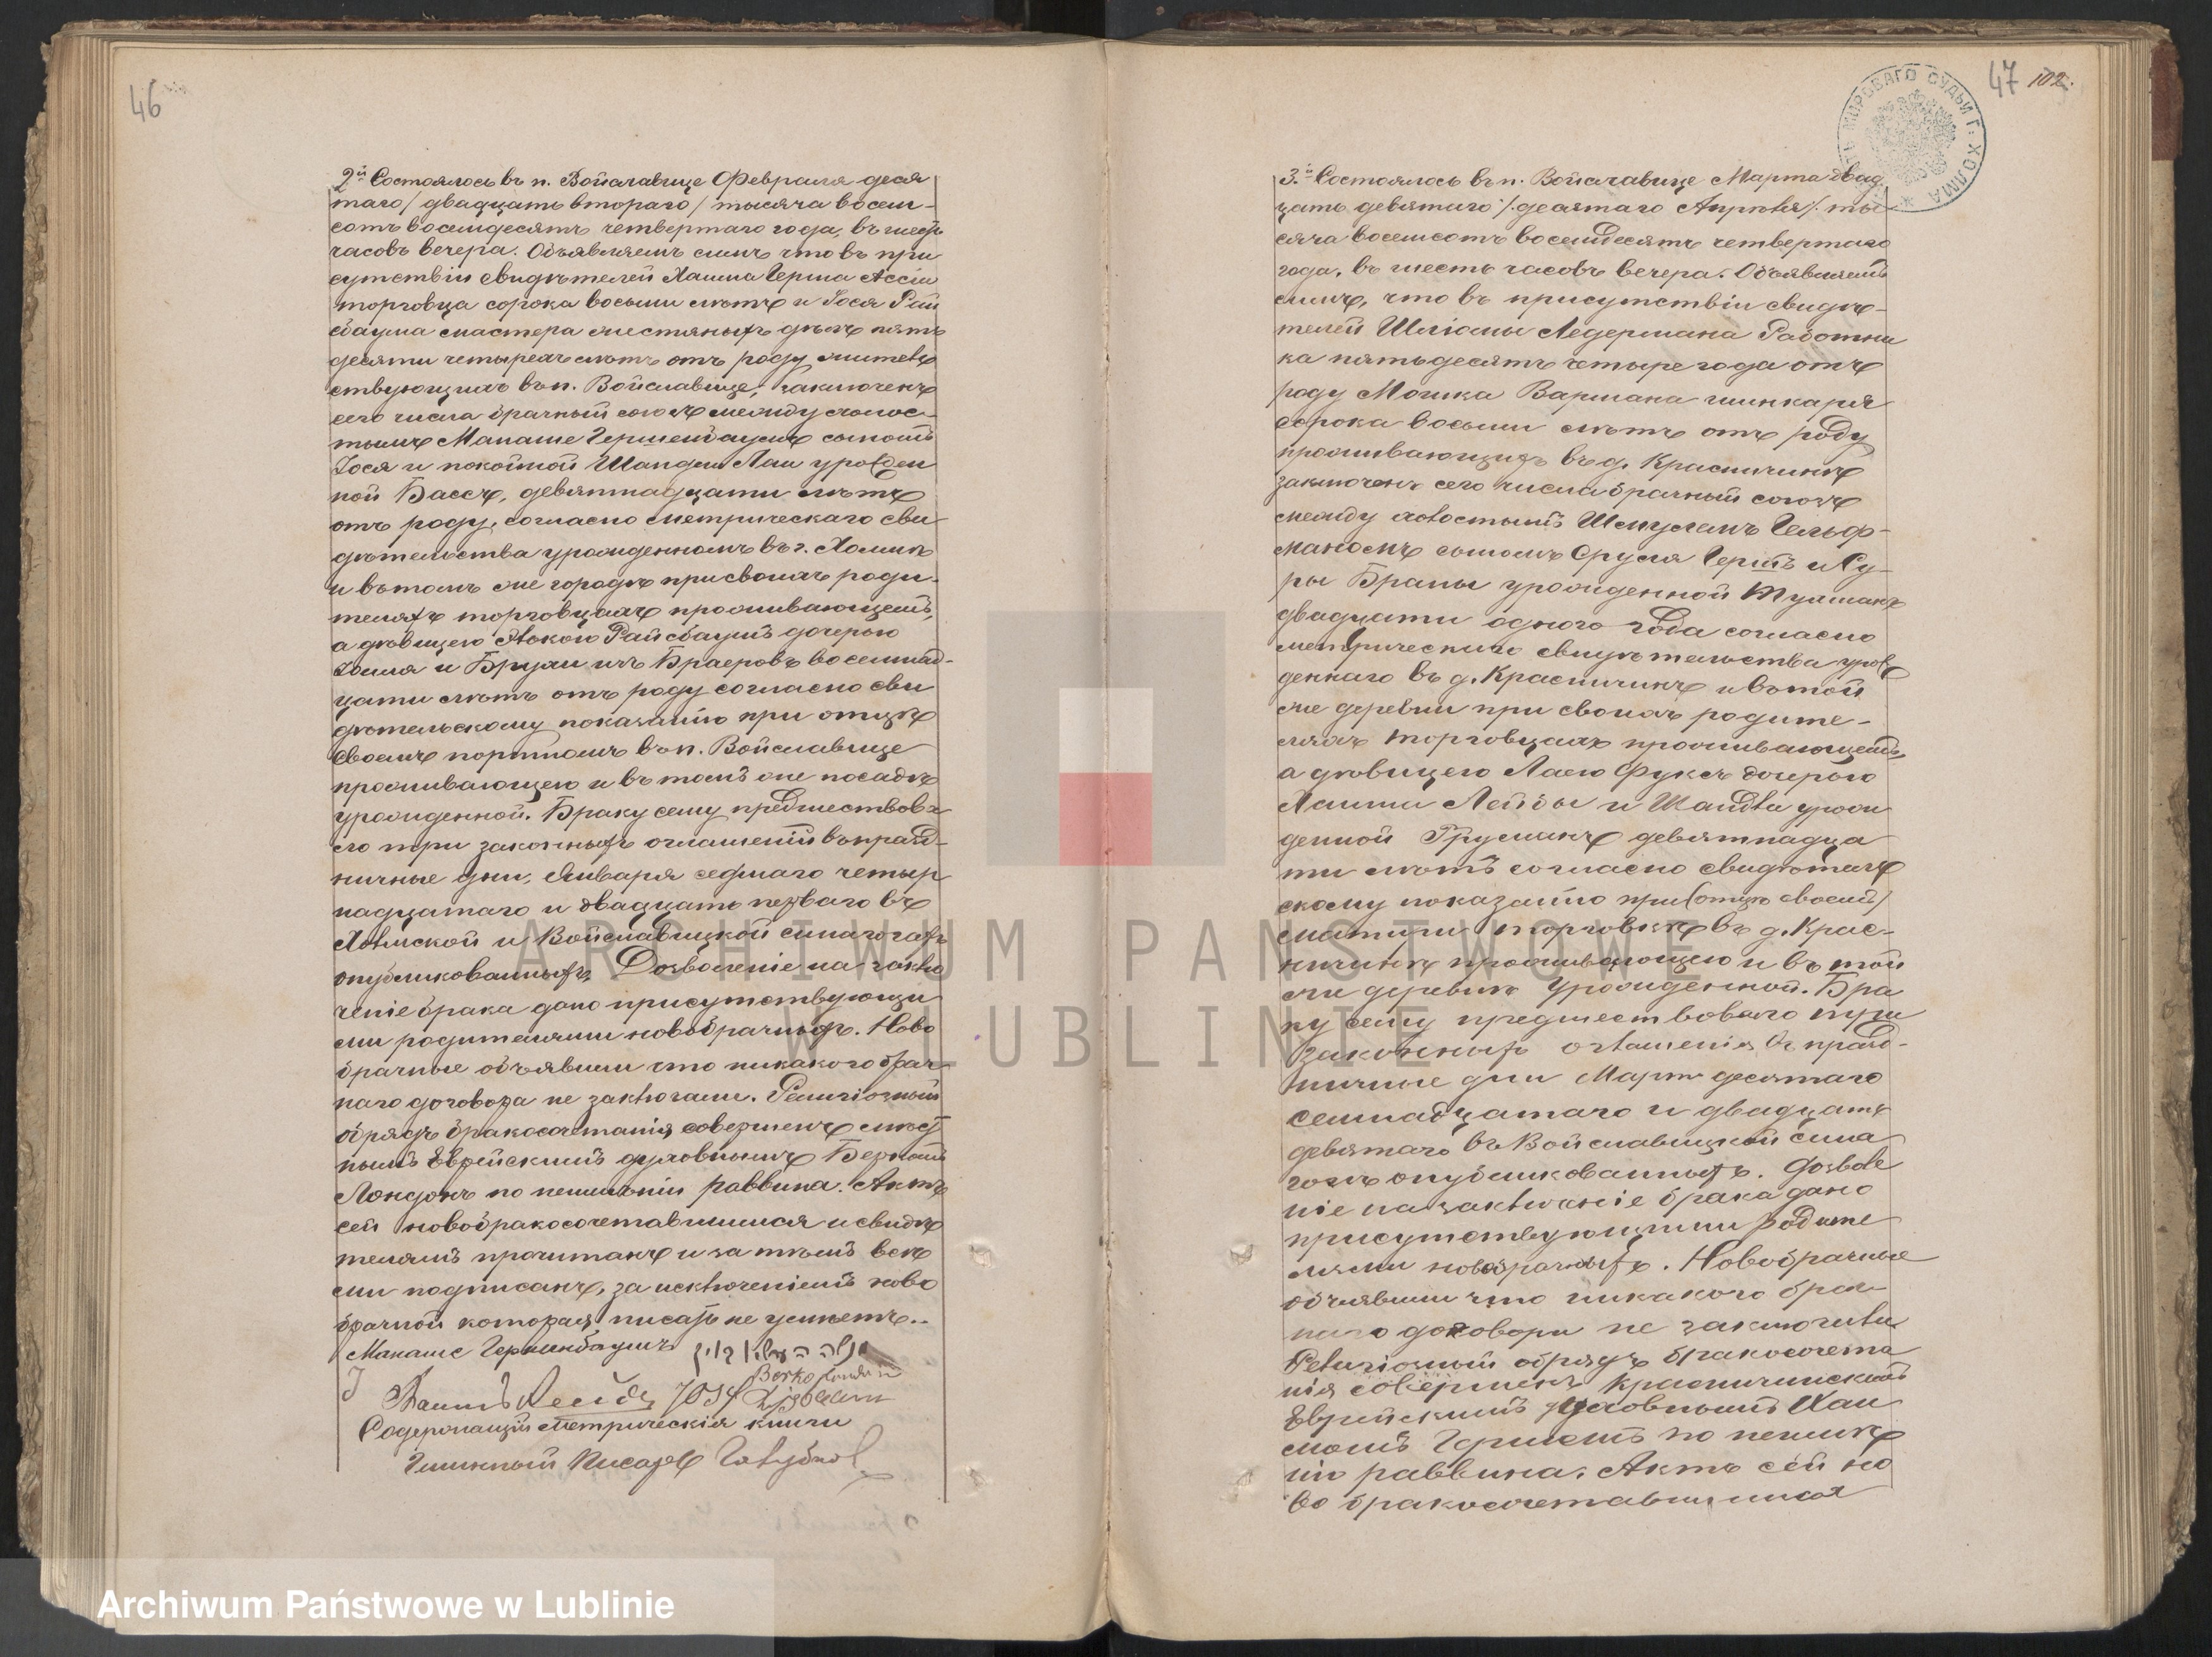 46
2й Состоялось въ п. Войславице Февраля деся
таго / двадцать втораго / тысяча восем-
сотъ восемдесятъ четвертаго года, въ шесть
часовъ вечера. Объявляемъ симъ что въ при
сутствіи свидѣтелей Хаима Герша Ассін
торговца сорока восьми лѣтъ и Іося Рай
сбаума мастера пять
десяти четырехъ лѣтъ отъ роду жительс
твующихъ въ п. Войславице, заключенъ
сего числа брачный союзъ между холос-
тымъ Манаше Гершенбаумъ сыномъ
Іося и покойной Шандли Лаи урожден
ной Бассъ, девятнадцати лѣтъ
отъ роду, согласно метрическаго сви
дѣтельства урожденномъ въ г. Холмѣ
и въ томъ же городѣ при своихъ роди-
теляхъ торговцахъ проживающемъ,
а дѣвицею Райсбаумъ дочерью
и изъ Браеровъ восемнад-
цати лѣтъ отъ роду согласно сви
дѣтельскому показанію при отцѣ
своемъ портномъ въ п. Войславице
проживающею и въ томъ же посадѣ
урожденной. Браку сему предшествова
ло три законныхъ оглашеній въ празд-
ничные дни, Января седмаго четыр
надцатаго и двадцать перваго въ
Холмской и Войславицкой синагогахъ
опубликованныхъ. Дозволеніе на заклю
ченіе брака дано присутствующи
ми родителями новобрачныхъ. Ново
брачные объявили что никакого брач
наго договора не заключали. Религіозный
обрядъ бракосочетанія совершенъ мѣст
нымъ Еврейскимъ духовнымъ Беркомъ
Лондонъ по неимѣнію раввина. Актъ
сей новобракосочетавшимся и свидѣ
телямъ прочитанъ и за тѣмъ всѣ
ми подписанъ, за исключеніемъ ново
брачной которая писать не умѣетъ.
Манаше Гершенбаумъ
Berko London
Josf Rajsbaum
Содержащій метрическія книги
Гминный Писарь
47 102.
МИРОВАГО СУДЬИ Г. ХОЛМА
3й Состоялось въ п. Войславице Марта двад
цать девятаго /: десятаго Апрѣля /: ты
сяча восемсотъ восемдесятъ четвертаго
года, въ шесть часовъ вечера. Объявляемъ
симъ, что въ присутствіи свидѣ-
телей Шліомы Ледермана Работни
ка пятьдесятъ четыре года отъ
роду Мошка Вармана шинкаря
сорока восьми лѣтъ отъ роду
проживающихъ въ д. Красничинѣ
заключенъ сего числа брачный союзъ
между холостымъ Шмуломъ Гельф-
маномъ сыномъ Сруля Герша и Су-
ры Браны урожденной
двадцати одного года согласно
метрическаго свидѣтельства урож
деннаго въ д. Красничинѣ и въ той
же деревни при своихъ родите-
ляхъ торговцахъ проживающемъ,
а дѣвицею Лаею Фуксъ дочерью
Хаима Лейбы и урож
денной девятнадца
ти лѣтъ согласно свидѣтель
скому показанію при (отцѣ своемъ)
матери торговкѣ въ д. Крас-
ничинѣ проживающею и въ той
же деревнѣ урожденной. Бра
ку сему предшествовало три
законныхъ оглашенія въ празд-
ничные дни Марта десятаго
семнадцатаго и двадцать
девятаго въ Войславицкой сина
гогѣ опубликованныхъ. Дозволе
ніе на заключеніе брака дано
присутствующими родите
лями новобрачныхъ. Новобрачные
объявили что никакого брач
наго договора не заключали
Религіозный обрядъ бракосочета
нія совершенъ Красничинскимъ
Еврейскимъ духовнымъ Хаи
момъ Гершемъ по неимѣ
нію раввина. Актъ сей но
во бракосочетавшимися
ARCHIWUM PAŃSTWOWE
W LUBLINIE
Archiwum Państwowe w Lublinie